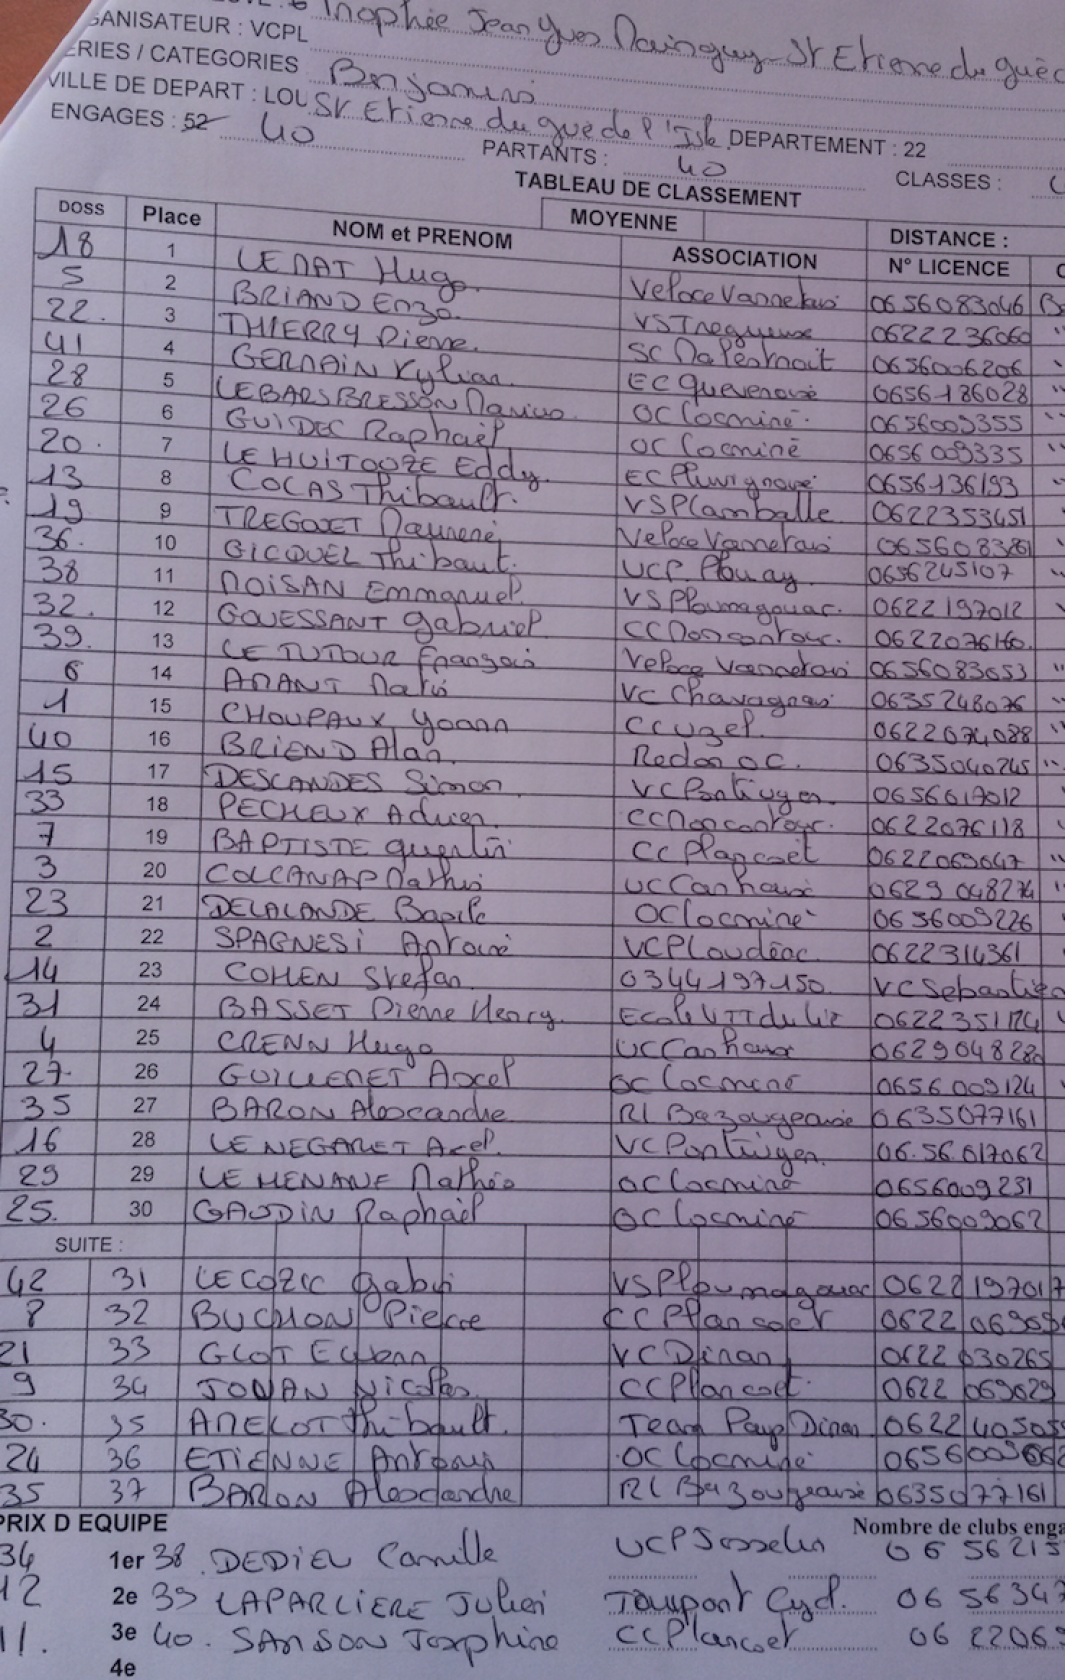 Trophée Jean Yves Mainguy - St Etienne du guéd
GANISATEUR : VCPL
ERIES / CATEGORIES Benjamins
VILLE DE DEPART : LOU St Etienne du gué de l'Isle DEPARTEMENT : 22
ENGAGES : 52 40 PARTANTS : 40 CLASSES :
TABLEAU DE CLASSEMENT
MOYENNE DISTANCE :
DOSS Place NOM et PRENOM ASSOCIATION N° LICENCE
18 1 LE MAT Hugo. Veloce Vannetais 0656083046
5 2 BRIAND Enzo. VS Tregueux 0622236060
22. 3 THIERRY Pierre. SC Malestroit 0656006206
41 4 GERMAIN Kylian. EC Quevenois 0656186028
28 5 LEBARS BRESSON Marius. OC Locminé. 0656009355
26 6 GUIDEC Raphaël OC Locminé 0656009335
20. 7 LE HUITOUZE Eddy. EC Pluvignois 0656136193
13 8 COLAS Thibault. VSP Lamballe 0622353451
19 9 TREGOUET Veloce Vannetais
36. 10 GICQUEL Thibaut. UCP. Plouay. 0656245107
38 11 MOISAN Emmanuel. VSPloumagouar. 0622197012
32. 12 GOUESSANT Gabriel CC Moncontour. 0622076160.
39. 13 LE TUTOUR François Veloce Vannetais 0656083053
6 14 AMANT Matis VC Chavagnais 0635248076
1 15 CHOUPAUX Yoann CC Uzel. 0622074088
40 16 BRIEND Alan. Redon O C. 0635040245
15 17 DESCANDES Simon. VC Pontivyen. 0656017012
33 18 PECHEUX Adrien. CC Moncontour. 0622076118
7 19 BAPTISTE Quentin CC Plancoët 0622069047
3 20 COLCANAP Mathis UC Carhaisi 0629048274
23 21 DELALANDE Basile OC Locminé 0656009226
2 22 SPAGNESI Antoine VCP Loudéac 0622314361
14 23 COHEN Stefan. 0344197150. VC Sébastien
31 24 BASSET Pierre Henry. Ecole VTT du Lié 0622351124
4 25 CRENN Hugo UC Carhaix 062904828
27. 26 GUILLEMET Axel OC Locminé 0656009124
35 27 BARON Alexandre RL Bazougeaise 0635077161
16 28 LE NEGARET Axel. VC Pontivyen. 06.56.017062
29 29 LE MENANE Mathéo OC Locminé 0656009231
25. 30 GAUDIN Raphaël OC Locminé 0656009062
SUITE :
42 31 LE COZIC Gabin VSPloumagouar 0622197017
8 32 BUCHON Pierre CC Plancoët 062206909
21 33 GLOT Ewenn VC Dinan 0622030265
9 34 JOUAN Nicolas CC Plancoet. 0622069029
30. 35 AMELOT Thibault. Team Pays Dinan 062240505
24 36 ETIENNE Antonin OC Locminé
35 37 BARON Alexandre RL Bazougeaise 0635077161
PRIX D EQUIPE Nombre de clubs enga
34 1er 38. DEDIEU Camille UCP Josselin 0656215
12 2e 39 LAPARLIERE Julien Cycl. 0656347
11. 3e 40. SAMSON Josephine CC Plancoet 062206
4e